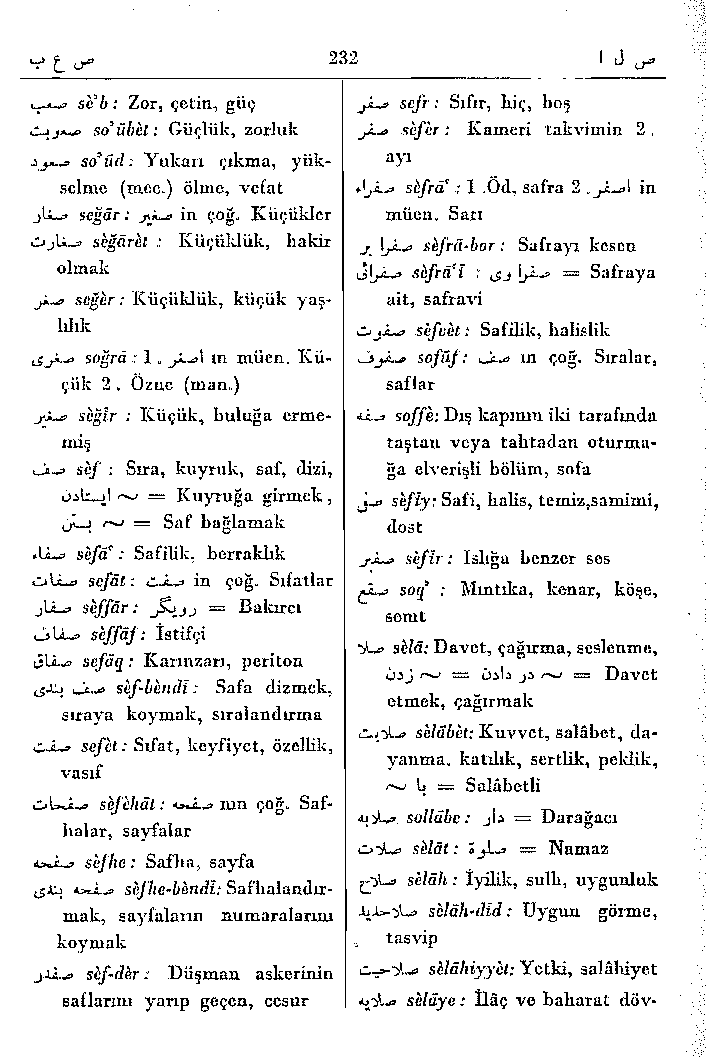 ص ع ب 232 ص ل ا
صعب sè'b: Zor, çetin, güç
صعوبت so'übèt: Güçlük, zorluk
صعود so'ūd: Yukarı çıkma, yük-
selme (mec.) ölme, vefat
صغار seğār: صغیر in çoğ. Küçükler
صغارت sèğārèt : Küçüklük, hakir
olmak
صغر seğèr: Küçüklük, küçük yaş-
lılık
صغری soğrā : 1 . اصغر ın müen. Kü-
çük 2 . Özne (man.)
صغیر sèğīr : Küçük, buluğa erme-
miş
صف sèf : Sıra, kuyruk, saf, dizi,
ایستادن ~ = Kuyruğa girmek,
بستن ~ = Saf bağlamak
صفاء sèfā' : Safilik, berraklık
صفات sefāt: صفت in çoğ. Sıfatlar
صفار sèffār: رویگر = Bakırcı
صفاف sèffāf: İstifçi
صفاق sefāq: Karınzarı, periton
صف بندی sèf-bèndī: Safa dizmek,
sıraya koymak, sıralandırma
صفت sefèt: Sıfat, keyfiyet, özellik,
vasıf
صفحات sèfèhāt: صفحه nın çoğ. Saf-
halar, sayfalar
صفحه sèfhe: Safha, sayfa
صفحه بندی sèfhe-bèndī: Safhalandır-
mak, sayfaların numaralarını
koymak
صفدر sèf-dèr: Düşman askerinin
saflarını yarıp geçen, cesur
صفر sefr: Sıfır, hiç, boş
صفر sèfèr: Kameri takvimin 2.
ayı
صفراء sèfrā' : 1 .Öd, safra 2 . اصفر in
müen. Sarı
صفرا بر sèfrā-bor: Safrayı kesen
صفرائی sèfrā'ī : صفرا وی = Safraya
ait, safravi
صفوت sèfvèt: Safilik, halislik
صفوف sofūf: صف ın çoğ. Sıralar,
saflar
صفه soffè: Dış kapının iki tarafında
taştan veya tahtadan oturma-
ğa elverişli bölüm, sofa
صفی sèfīy: Safi, halis, temiz,samimi,
dost
صفیر sèfīr: Islığa benzer ses
صقع soq' : Mıntıka, kenar, köşe,
semt
صلا sèlā: Davet, çağırma, seslenme,
زدن ~ = در دادن ~ = Davet
etmek, çağırmak
صلابت sèlābèt: Kuvvet, salâbet, da-
yanma, katılık, sertlik, peklik,
با ~ = Salâbetli
صلابه sollābe: دار = Darağacı
صلات sèlāt: صلوة = Namaz
صلاح sèlāh: İyilik, sulh, uygunluk
صلاحدید sèlāh-dīd: Uygun görme,
tasvip
صلاحیت sèlāhiyyèt: Yetki, salâhiyet
صلایه sèlāye: İlâç ve baharat döv-